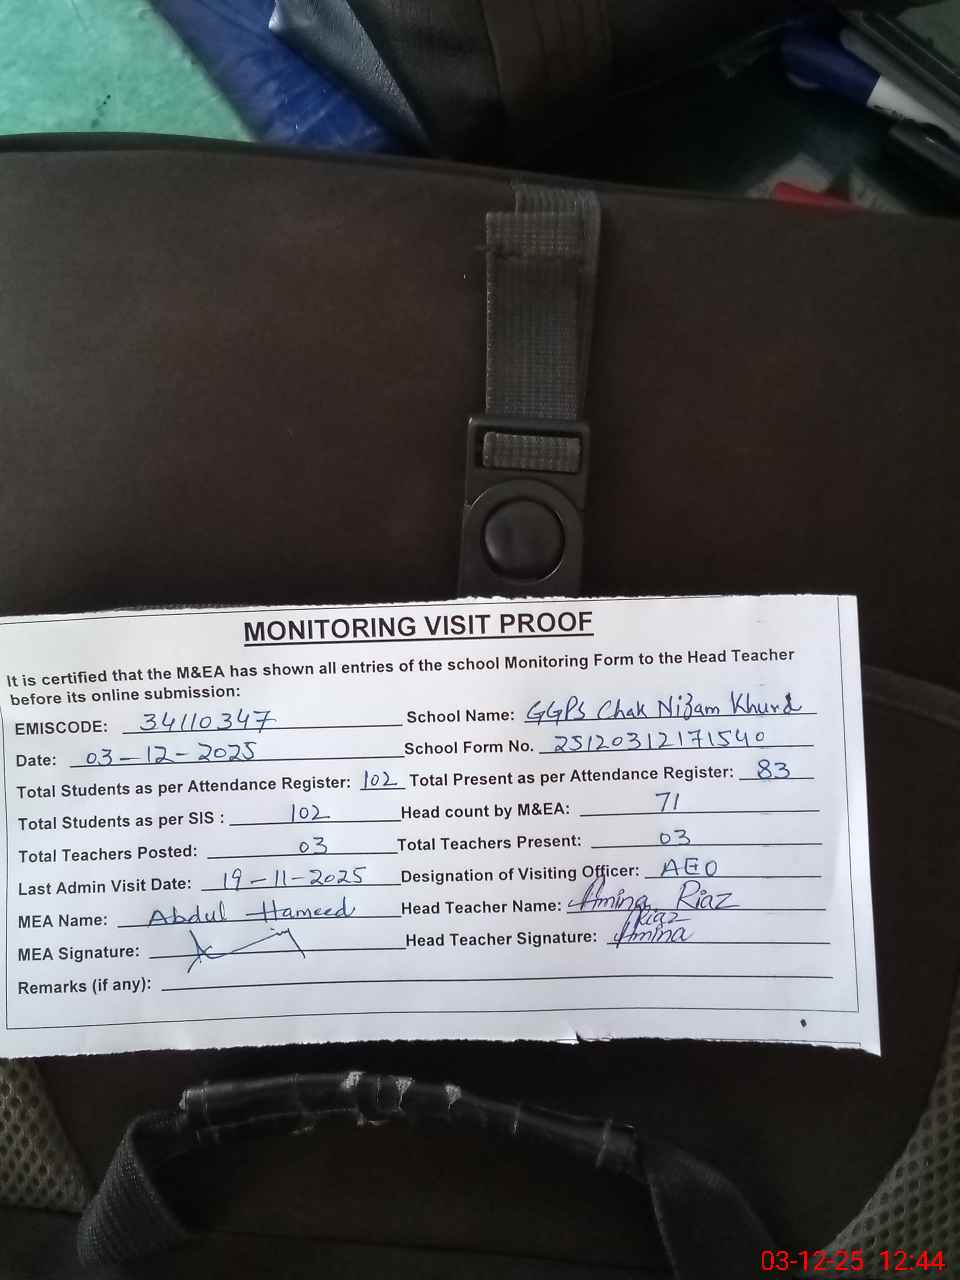 MONITORING VISIT PROOF
It is certified that the M&EA has shown all entries of the school Monitoring Form to the Head Teacher
before its online submission:
EMISCODE: 34110347 School Name: GGPS Chak Nizam Khurd
Date: 03-12-2025 School Form No. 25120312171540
Total Students as per Attendance Register: 102 Total Present as per Attendance Register: 83
Total Students as per SIS : 102 Head count by M&EA: 71
Total Teachers Posted: 03 Total Teachers Present: 03
Last Admin Visit Date: 19-11-2025 Designation of Visiting Officer: AEO
MEA Name: Abdul Hameed Head Teacher Name: Amina Riaz
MEA Signature: Head Teacher Signature: Amina Riaz
Remarks (if any):
03-12-25 12:44